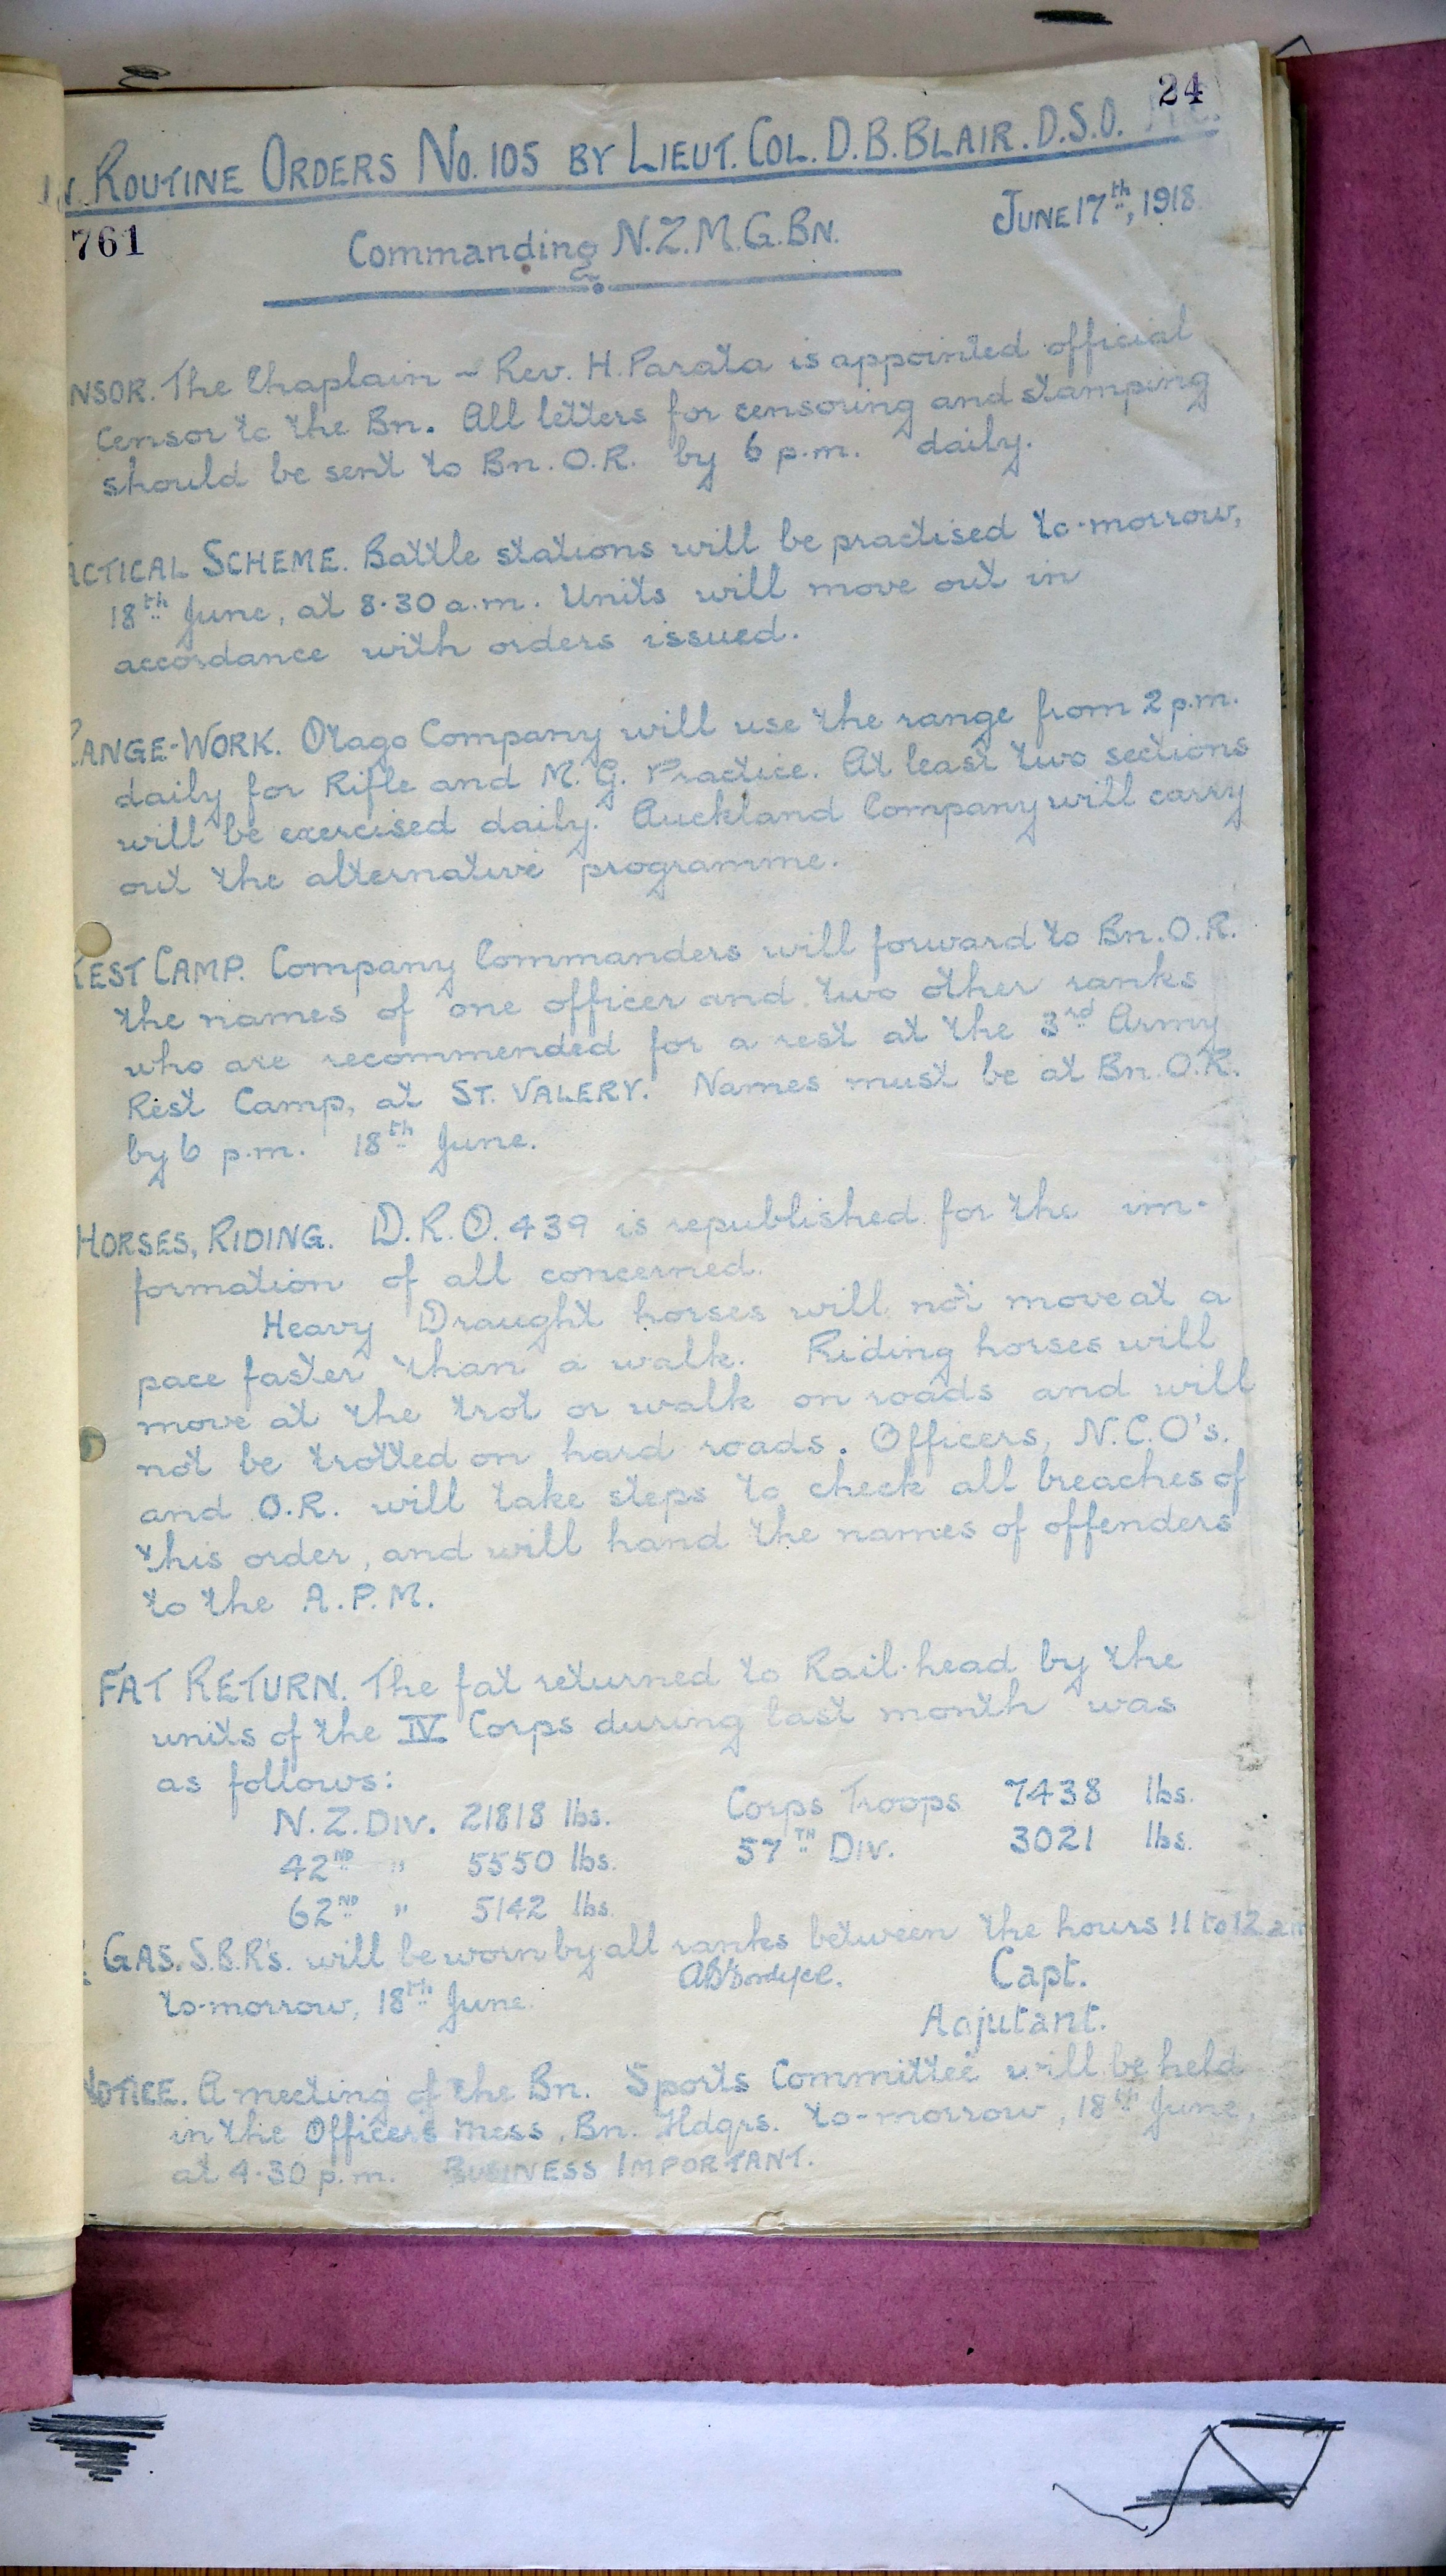 24
ROUTINE ORDERS NO. 105 BY LIEUT. COL. D.B. BLAIR. D.S.O. M.C.
761
JUNE 17th, 1918
Commanding N.Z.M.G.BN.
NSOR. The Chaplain ~ Rev. H. Parata is appointed official
censor to the Bn. All letters for censoring and stamping
should be sent to Bn. O.R. by 6 p.m. daily.
ACTICAL SCHEME. Battle stations will be practised to-morrow,
18th June, at 8.30 a.m. Units will move out in
accordance with orders issued.
RANGE-WORK. Otago Company will use the range from 2 p.m.
daily for Rifle and M.G. Practice. At least two sections
will be exercised daily. Auckland Company will carry
out the alternative programme.
REST CAMP. Company Commanders will forward to Bn. O.R.
the names of one officer and two other ranks
who are recommended for a rest at the 3rd Army
Rest Camp, at ST. VALERY. Names must be at Bn. O.R.
by 6 p.m. 18th June.
HORSES, RIDING. D.R.O. 439 is republished for the in-
formation of all concerned.
Heavy Draught horses will not move at a
pace faster than a walk. Riding horses will
move at the trot or walk on roads and will
not be trotted on hard roads. Officers, N.C.O's.
and O.R. will take steps to check all breaches of
this order, and will hand the names of offenders
to the A.P.M.
FAT RETURN. The fat returned to Rail-head by the
units of the IV Corps during last month was
as follows:
N.Z. DIV. 21818 lbs. Corps Troops 7438 lbs.
42ND " 5550 lbs. 57TH DIV. 3021 lbs.
62ND " 5142 lbs.
GAS. S.B.R's. will be worn by all ranks between the hours 11 to 12 am
to-morrow, 18th June.
Capt.
Adjutant.
NOTICE. A meeting of the Bn. Sports Committee will be held
in the Officers Mess, Bn. Hdqrs. to-morrow, 18th June,
at 4.30 p.m. BUSINESS IMPORTANT.